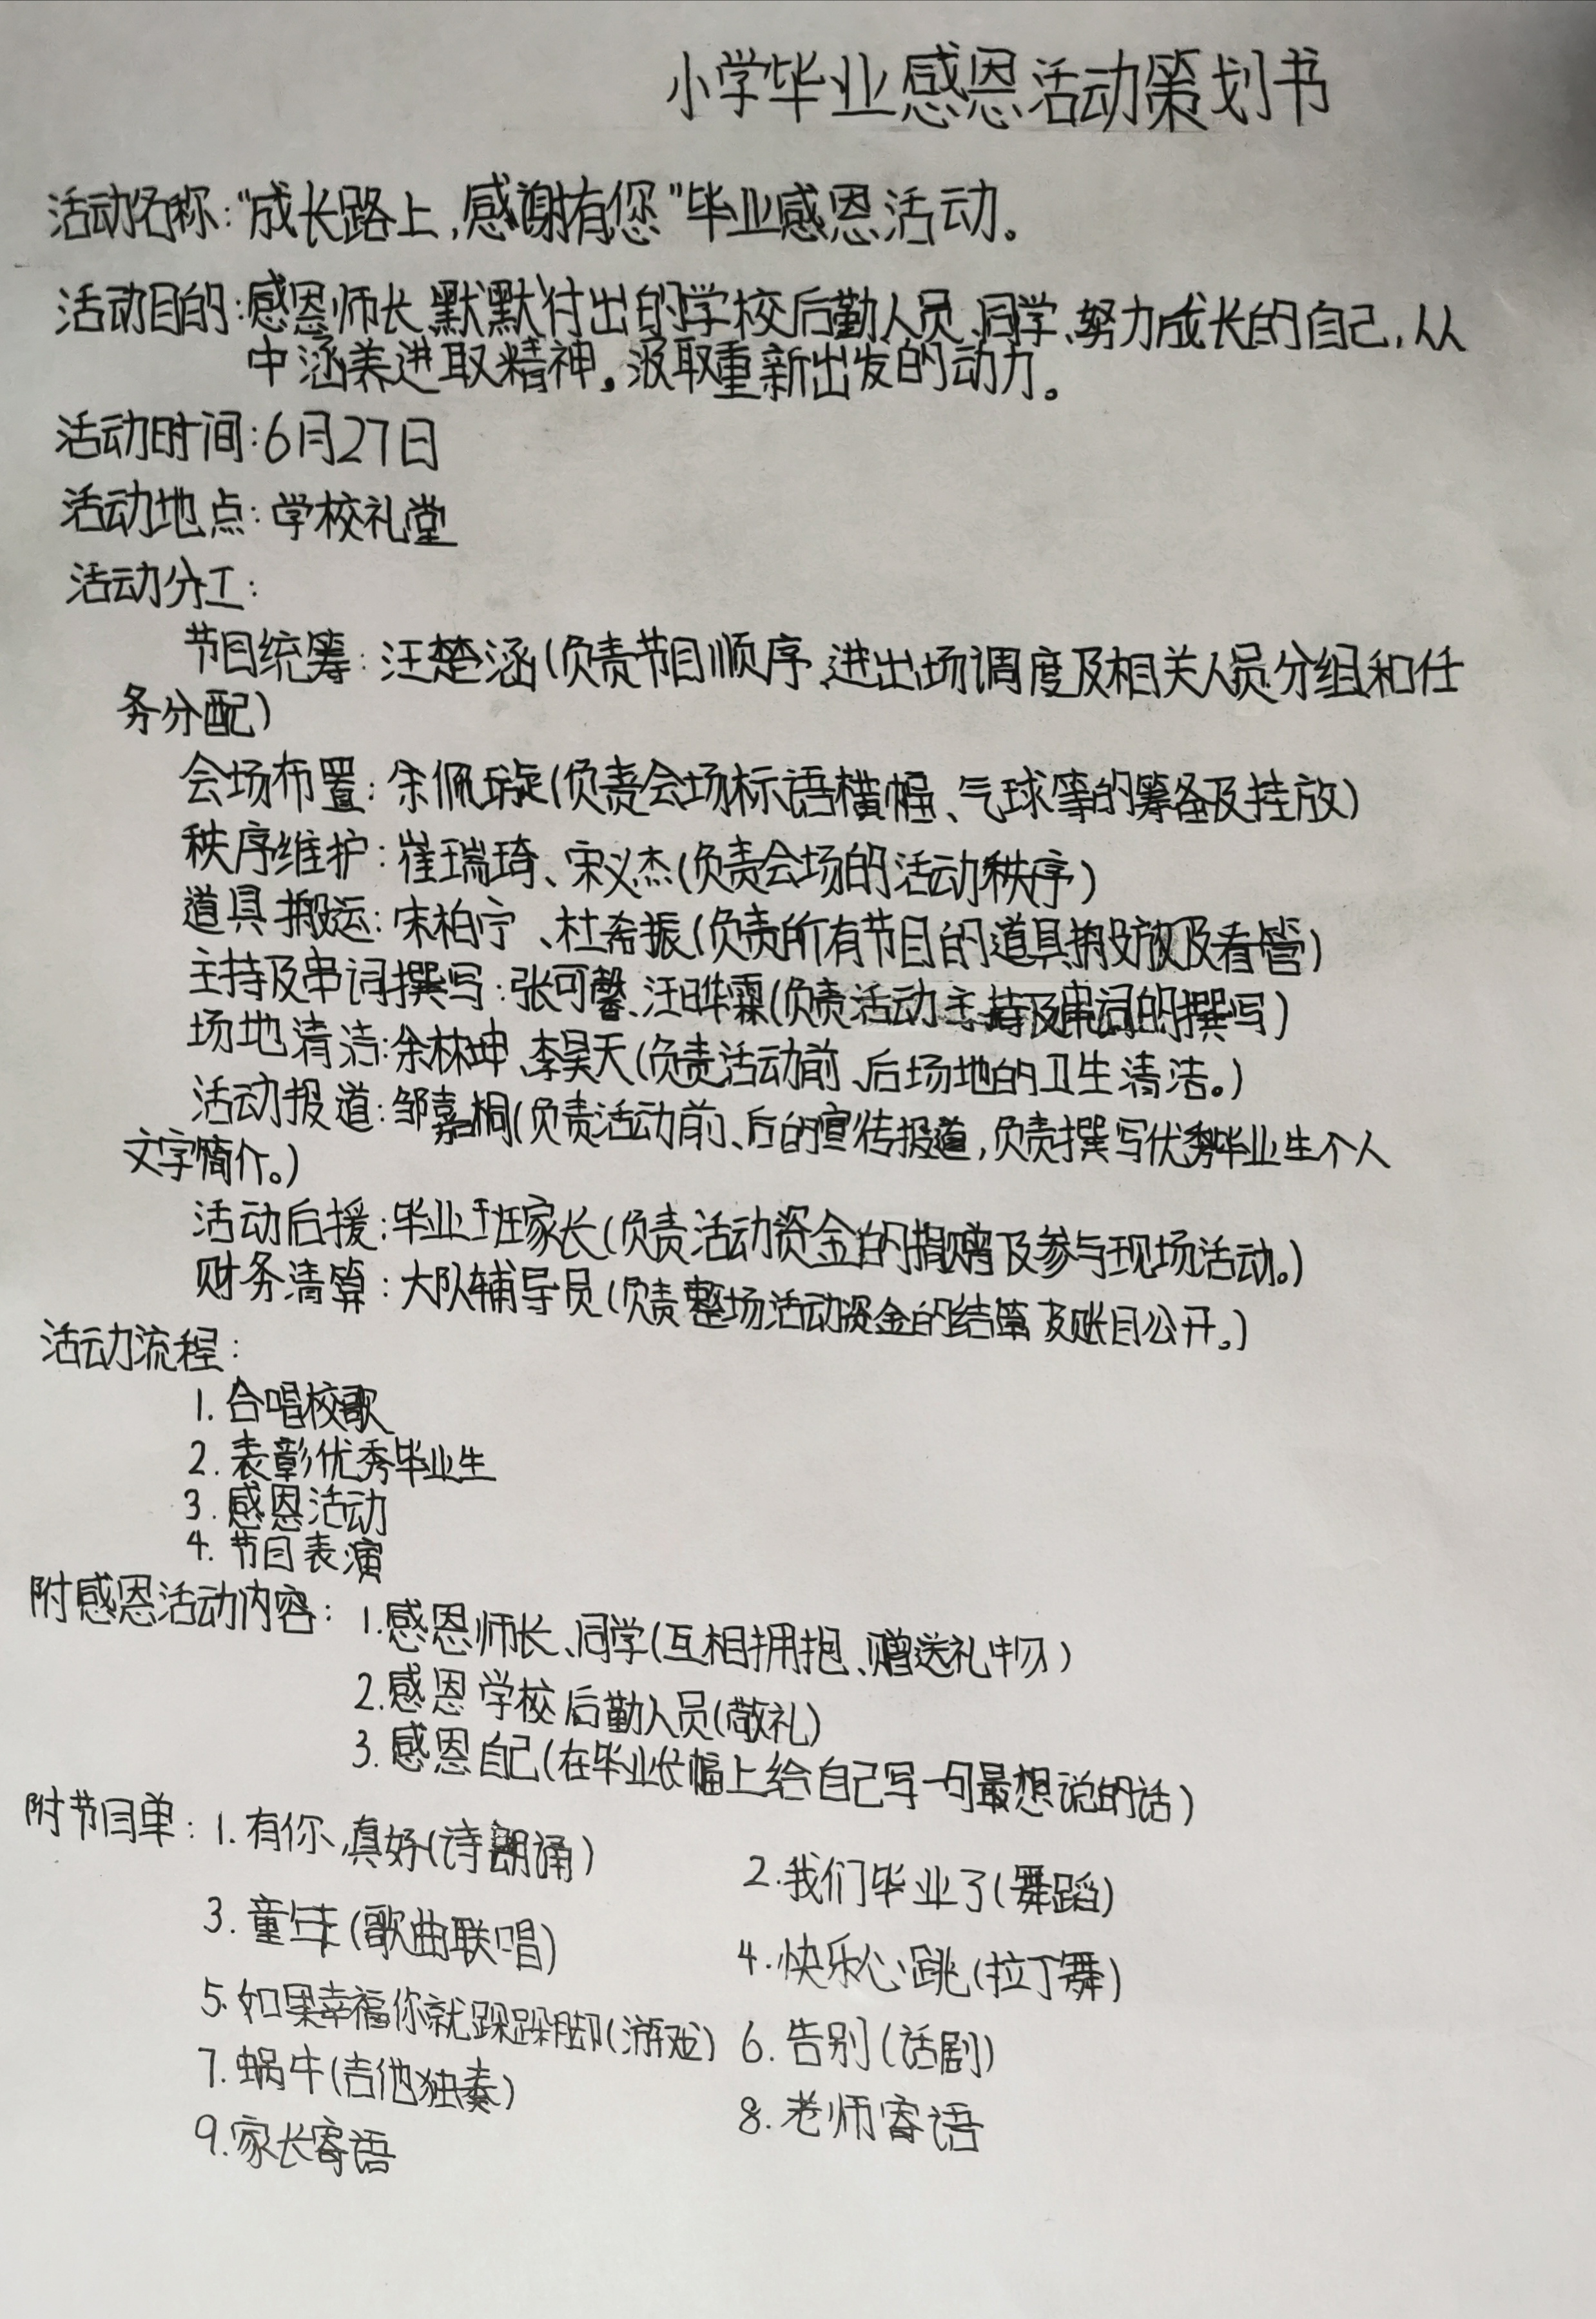 小学毕业感恩活动策划书
活动名称:“成长路上,感谢有您”毕业感恩活动。
活动目的:感恩师长、默默付出的学校后勤人员、同学、努力成长的自己,从
中涵养进取精神。汲取重新出发的动力。
活动时间:6月27日
活动地点:学校礼堂
活动分工:
节目统筹:汪楚涵(负责节目顺序、进出场调度及相关人员分组和任
务分配)
会场布置:余佩璇(负责会场标语横幅、气球等的筹备及挂放)
秩序维护:崔瑞琦、宋义杰(负责会场的活动秩序)
道具搬运:宋柏宁、杜希振(负责所有节目的道具搬放及看管)
主持及串词撰写:张可馨、汪晔霖(负责活动主持及串词的撰写)
场地清洁:余林坤、李昊天(负责活动前、后场地的卫生清洁。)
活动报道:邹嘉桐(负责活动前、后的宣传报道,负责撰写优秀毕业生个人
文字简介。)
活动后援:毕业班家长(负责活动资金的捐赠及参与现场活动。)
财务清算:大队辅导员(负责整场活动资金的结算及账目公开。)
活动流程:
1.合唱校歌
2.表彰优秀毕业生
3.感恩活动
4.节目表演
附感恩活动内容:1.感恩师长、同学(互相拥抱、赠送礼物)
2.感恩学校后勤人员(敬礼)
3.感恩自己(在毕业长幅上给自己写一句最想说的话)
附节目单:1.有你、真好(诗朗诵)
2.我们毕业了(舞蹈)
3.童年(歌曲联唱)
4.快乐心跳(拉丁舞)
5.如果幸福你就跺跺脚(游戏)
6.告别(话剧)
7.蜗牛(吉他独奏)
8.老师寄语
9.家长寄语